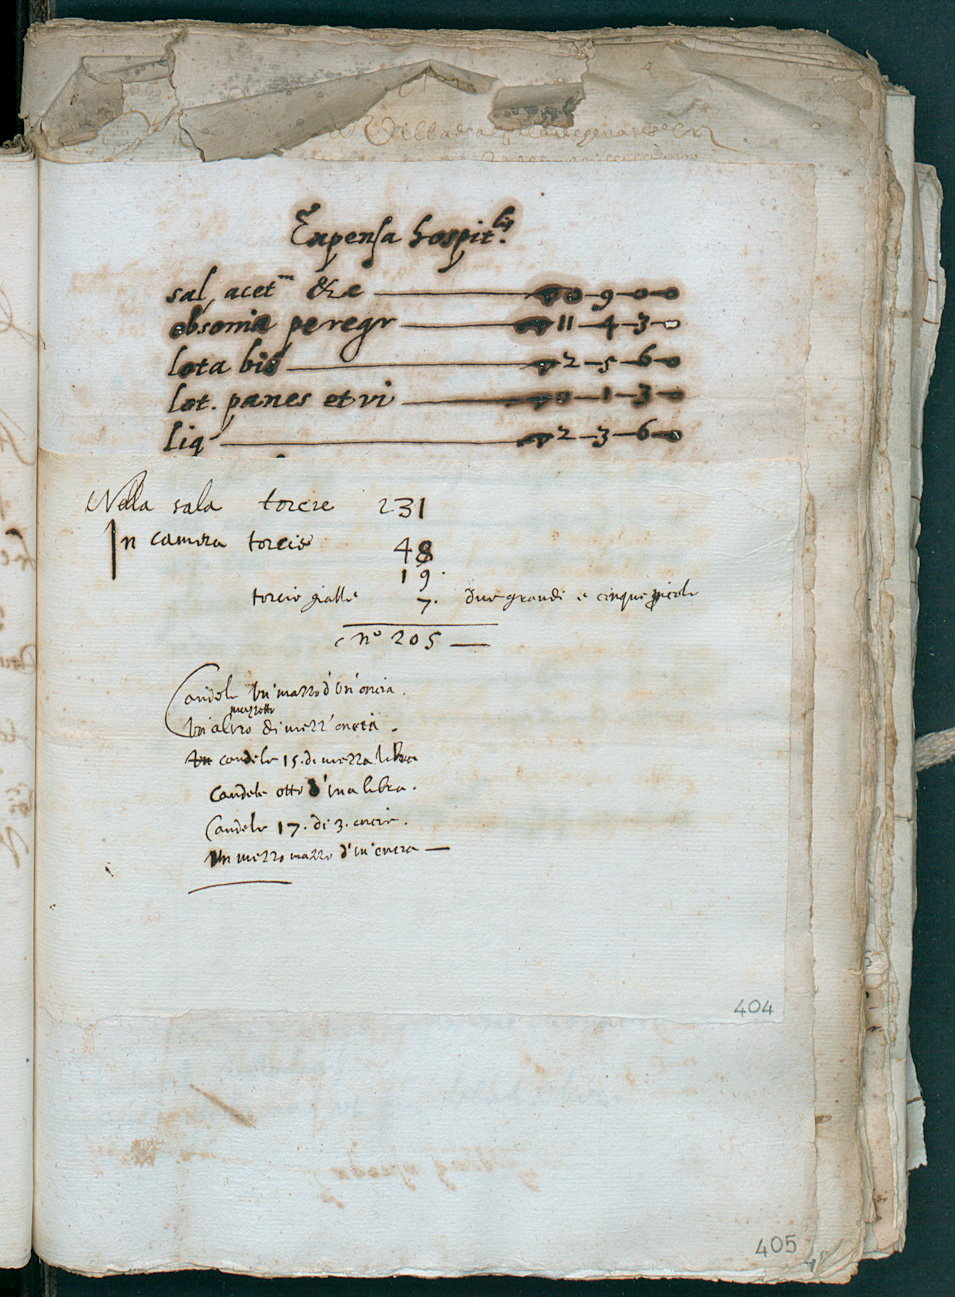 Expensa hospit.lis
sal, acet.m &c ——— 0 9 0 0
obsonia peregr ——— 11 4 3
lota bis ——— 2 5 6 0
lot. panes et vi ——— 0 1 3 0
liq ——— 2 3 6 0
Nella sala torcie 231
In camera torcie 48
19.
torcie gialle 7. due grandi e cinque picole
n.o 205 —
Candele un' mazzo d'un' oncia.
mazzetto
un' altro di mezz' oncia.
candele 15. di mezza libra
Candele otto d'una libra.
Candele 17. di 3. oncie.
Un mezzo mazzo d'un' oncia —
404
405